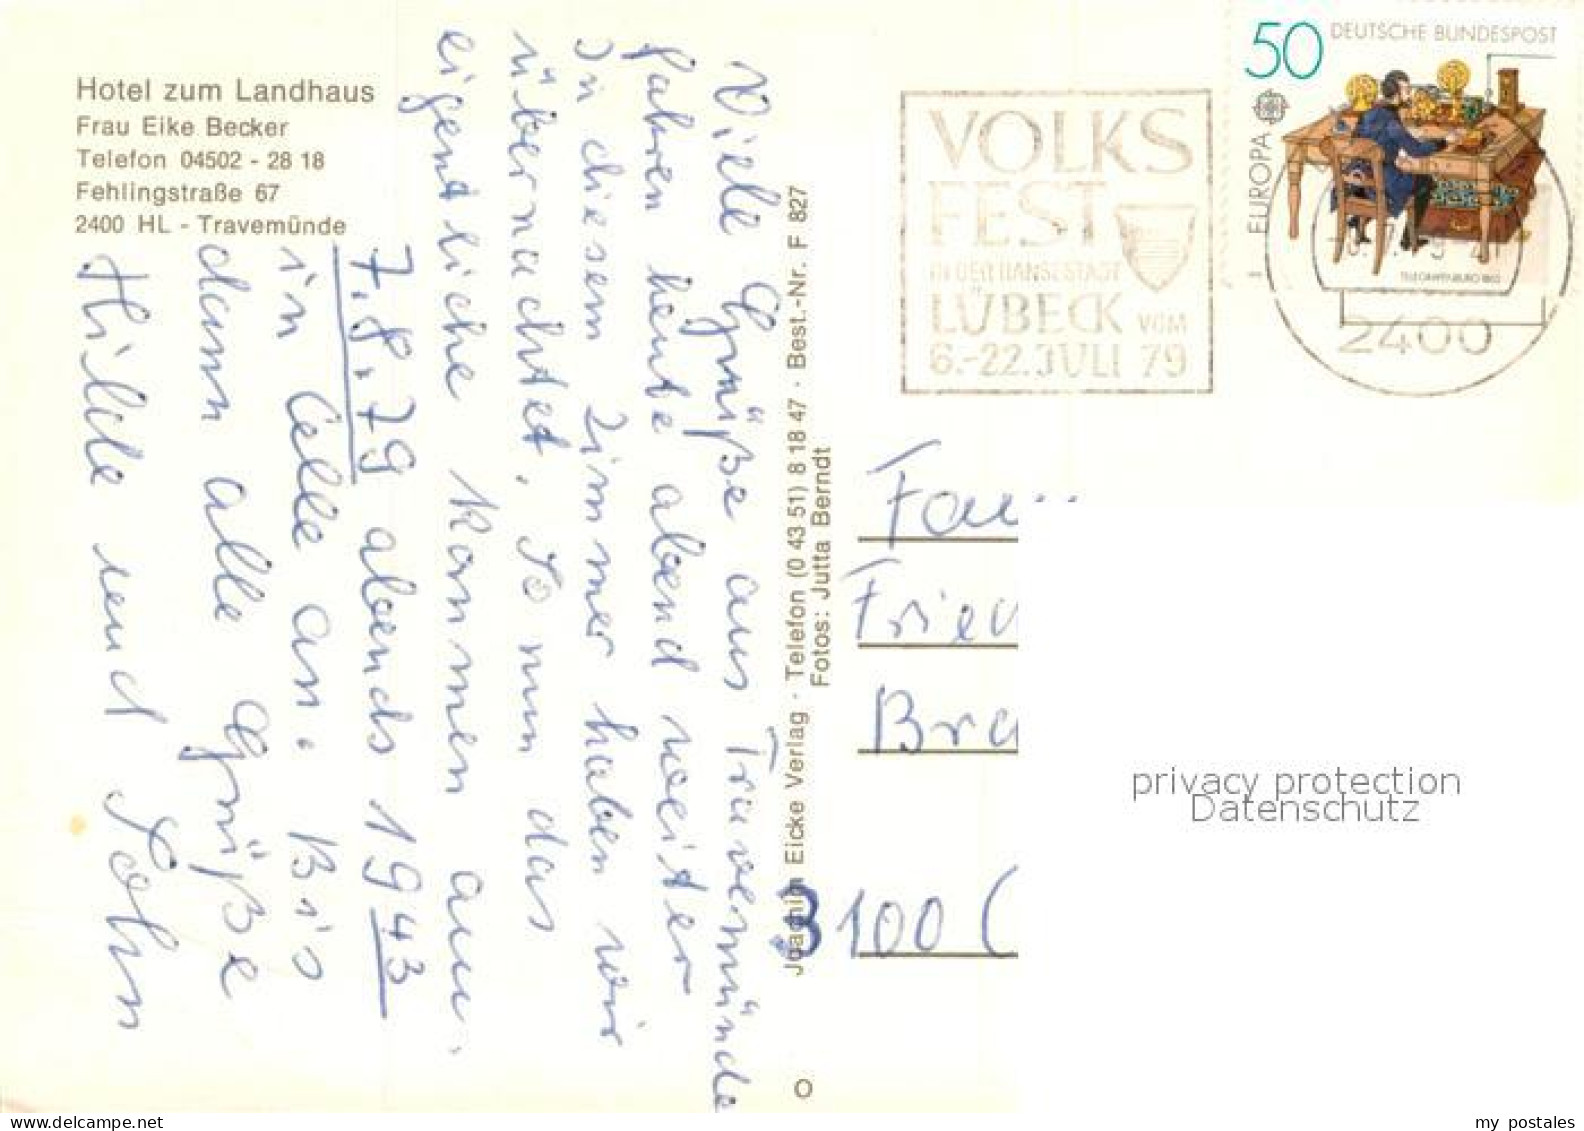 Hotel zum Landhaus
Frau Eike Becker
Telefon 04502 - 28 18
Fehlingstraße 67
2400 HL - Travemünde
Viele Grüße aus Travemünde
fahren heute abend weiter
In diesem Zimmer haben wir
übernachtet. So nun das
eigentliche kommen am
7.8.79 abends 1943
in Celle an. Bis
dann alle Grüße
Hilde und John
Joachim Eicke Verlag · Telefon (0 43 51) 8 18 47 · Best.-Nr. F 827
Fotos: Jutta Berndt
VOLKS
FEST
IN DER HANSESTADT
LÜBECK VOM
6.-22. JULI 79
50 DEUTSCHE BUNDESPOST
EUROPA
2400
Fried
Bra
3100 C
privacy protection
Datenschutz
my postales
www.delcampe.net